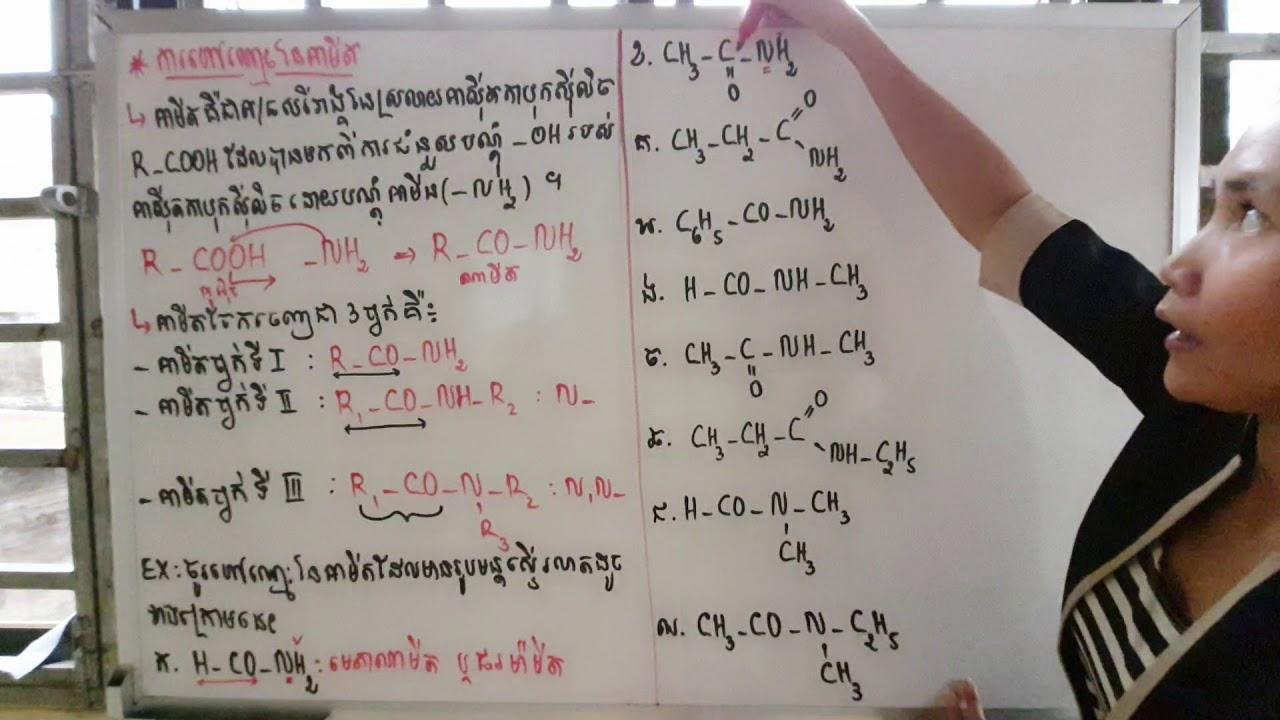 * ការហៅឈ្មោះនៃអាមីត
↳ អាមីតគឺជា នៃស្រលាយអាស៊ីតកាបុកស៊ីលិច
R_COOH ដែលបានមកពីការជំនួសបណ្តុំ _OH របស់
អាស៊ីតកាបុកស៊ីលិច ដោយបណ្តុំអាមីន (–NH₂) ។
R _ COOH _NH₂ → R _ CO – NH₂
អាមីត
↳ អាមីតចែកចេញជា 3 ថ្នាក់គឺ៖
- អាមីតថ្នាក់ទី I : R _ CO – NH₂
- អាមីតថ្នាក់ទី II : R₁ – CO – NH – R₂ : N –
- អាមីតថ្នាក់ទី III : R₁ – CO – N – R₂ : N,N –
R₃
EX : ចូរហៅឈ្មោះនៃអាមីតដែលមានរូបមន្តស្ទើរលាតដូច
ខាងក្រោមនេះ
ក. H – CO – NH₂ : មេតាណាមីត ឬ ផរម៉ាមីត
ខ. CH₃ – C – NH₂
O
គ. CH₃ – CH₂ – C
O
NH₂
ឃ. C₆H₅ – CO – NH₂
ង. H – CO – NH – CH₃
ច. CH₃ – C – NH – CH₃
O
ឆ. CH₃ – CH₂ – C
O
NH – C₂H₅
ជ. H – CO – N – CH₃
CH₃
ឈ. CH₃ – CO – N – C₂H₅
CH₃